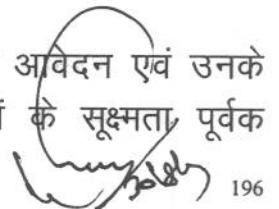 आवेदन एवं उनके
के सूक्ष्मता पूर्वक
196